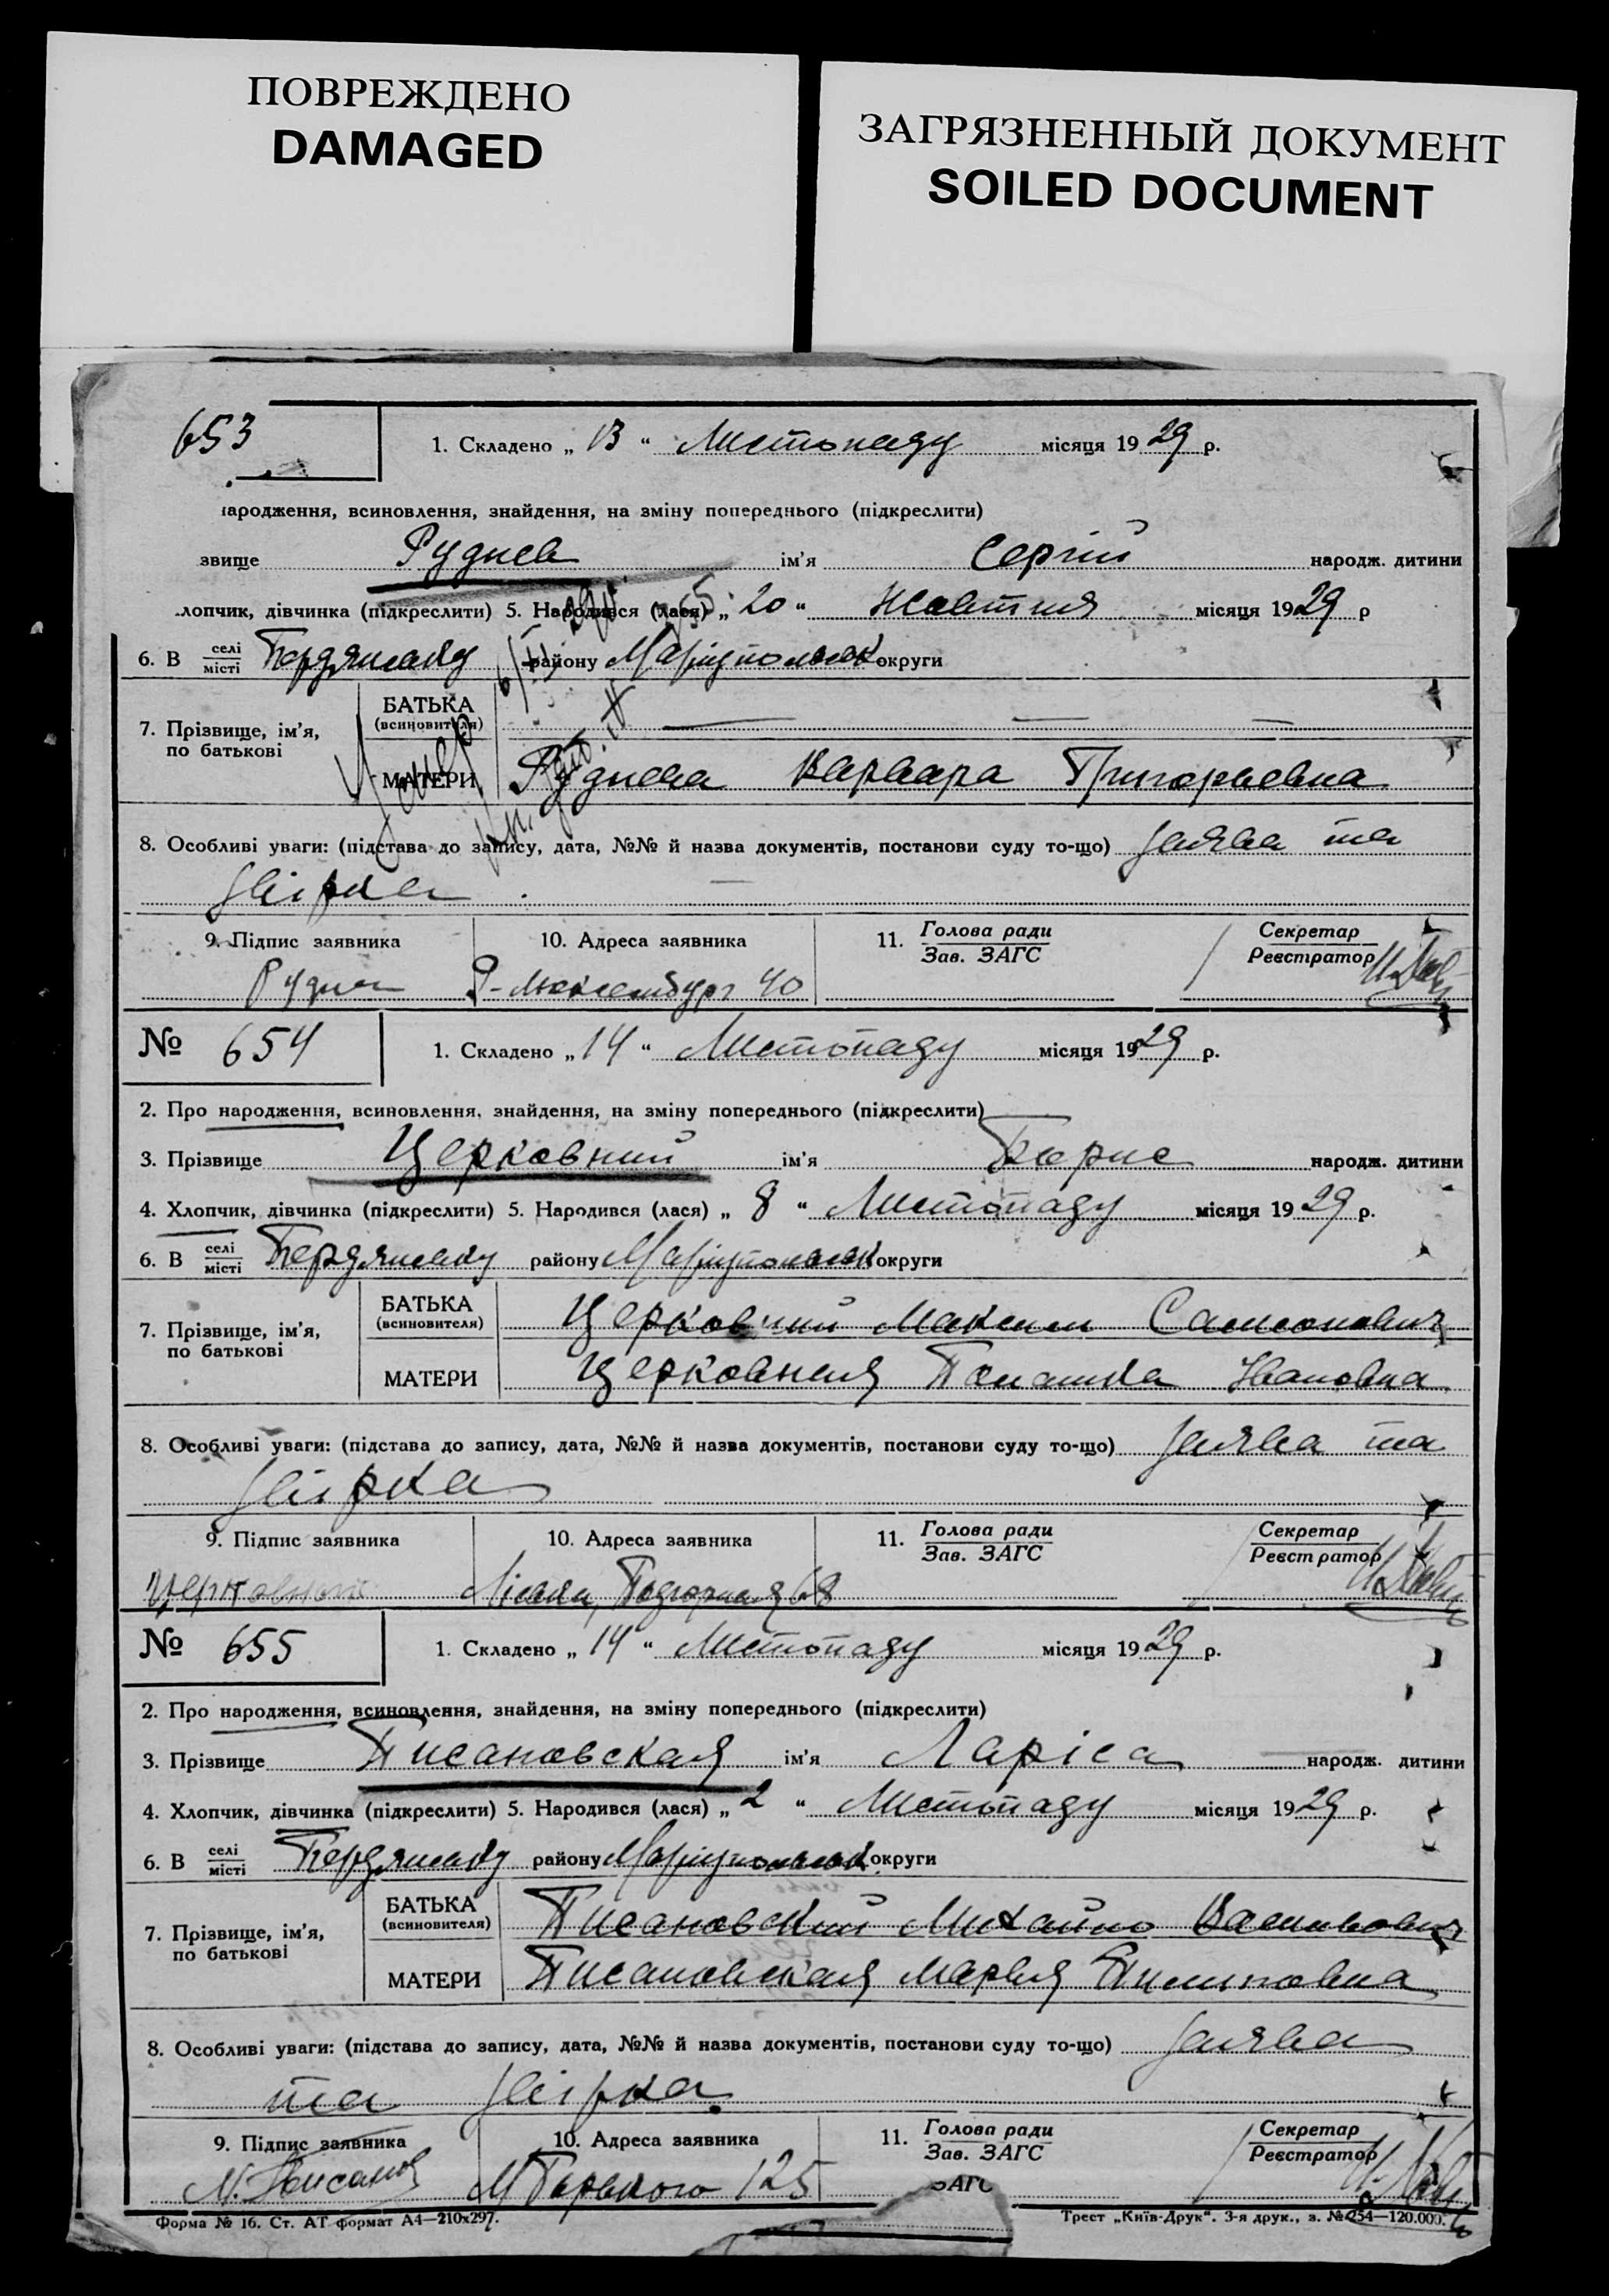 ПОВРЕЖДЕНО
DAMAGED
ЗАГРЯЗНЕННЫЙ ДОКУМЕНТ
SOILED DOCUMENT
653
1. Складено „ 13 “ Листопаду місяця 1929 р.
ародження, всиновлення, знайдення, на зміну попереднього (підкреслити)
звище Руднев ім’я Сергій народж. дитини
лопчик, дівчинка (підкреслити) 5. Народився (лася) „ 20 “ Жовтня місяця 1929 р
6. В селі місті Бердянську району Маріупольськ округи
7. Прізвище, ім’я, по батькові
БАТЬКА (всиновителя) — — —
МАТЕРИ Руднева Варвара Григорьевна
Умер
8. Особливі уваги: (підстава до запису, дата, №№ й назва документів, постанови суду то-що) Заява та
звірка
9. Підпис заявника 10. Адреса заявника 11. Голова ради Зав. ЗАГС Секретар Реєстратор
Руднев Р-Люксембург 40
№ 654 1. Складено „ 14 “ Листопаду місяця 1929 р.
2. Про народження, всиновлення, знайдення, на зміну попереднього (підкреслити)
3. Прізвище Церковний ім’я Борис народж. дитини
4. Хлопчик, дівчинка (підкреслити) 5. Народився (лася) „ 8 “ Листопаду місяця 1929 р.
6. В селі місті Бердянську району Маріупольськ округи
7. Прізвище, ім’я, по батькові
БАТЬКА (всиновителя) Церковний Максим Самсонович
МАТЕРИ Церковная Ивановна
8. Особливі уваги: (підстава до запису, дата, №№ й назва документів, постанови суду то-що) Заява та
звірка
9. Підпис заявника 10. Адреса заявника 11. Голова ради Зав. ЗАГС Секретар Реєстратор
Церковный Лиски, Подгорная 68
№ 655 1. Складено „ 14 “ Листопаду місяця 1929 р.
2. Про народження, всиновлення, знайдення, на зміну попереднього (підкреслити)
3. Прізвище Писановская ім’я Ларіса народж. дитини
4. Хлопчик, дівчинка (підкреслити) 5. Народився (лася) „ 2 “ Листопаду місяця 1929 р.
6. В селі місті Бердянську району Маріупольськ округи
7. Прізвище, ім’я, по батькові
БАТЬКА (всиновителя) Писановский Михайло Васильович
МАТЕРИ Писановская Марья Пилиповна
8. Особливі уваги: (підстава до запису, дата, №№ й назва документів, постанови суду то-що) Заява
та звірка.
9. Підпис заявника 10. Адреса заявника 11. Голова ради Зав. ЗАГС Секретар Реєстратор
М. Писанов М Горького 125
АГС
Форма № 16. Ст. АТ формат А4—210х297. Трест „Київ-Друк“. 3-я друк., з. № 254—120.000.